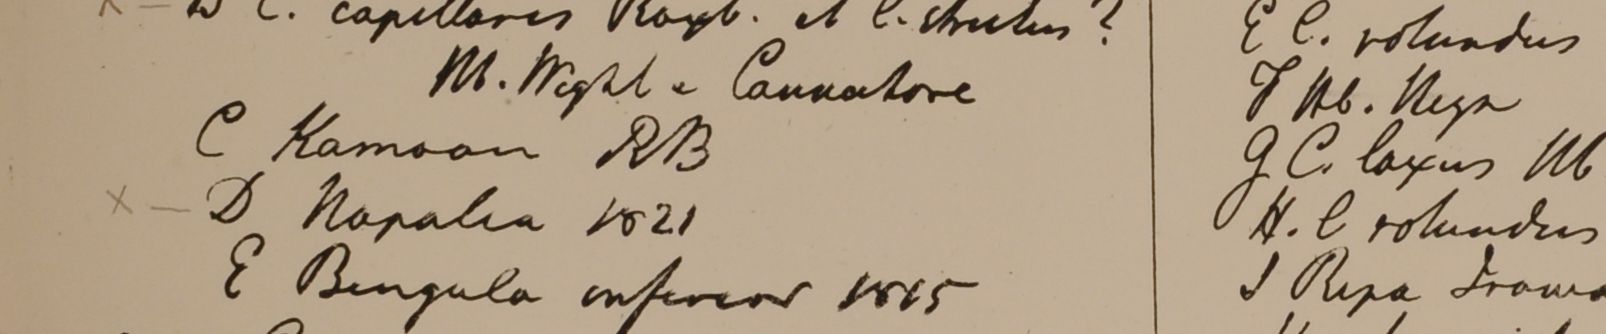 B C. capillaris Roxb. et C. strictus?
Hb. Wight e Cannatore
C Kamoon RB
x — D Napalia 1821
E Bengala inferior 1815
E C. rotundus
F Hb. Heyn
G C. laxus Hb
H. C rotundus
I Ripa